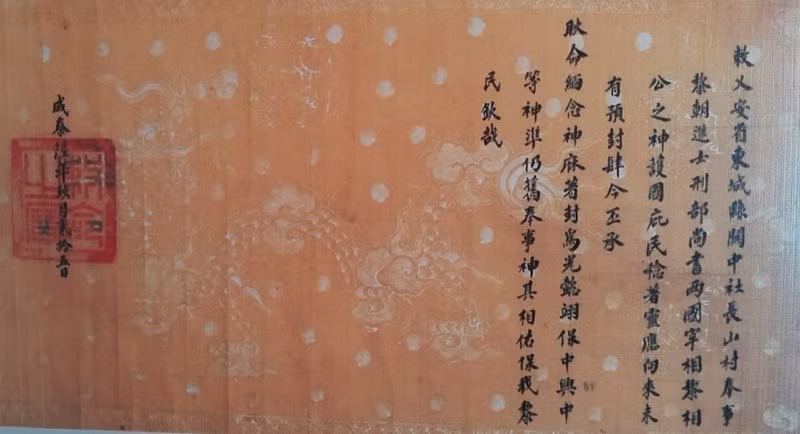 敕乂安省東城縣關中社長山村奉事
黎朝進士刑部尚書兩國宰相黎相
公之神護國庇民稔著靈應向來未
有預封肆今丕承
耿命緬念神庥著封爲光懿翊保中興中
等神準仍舊奉事神其相佑保我黎
民欽哉
成泰年月貳拾五日
敕命之寶